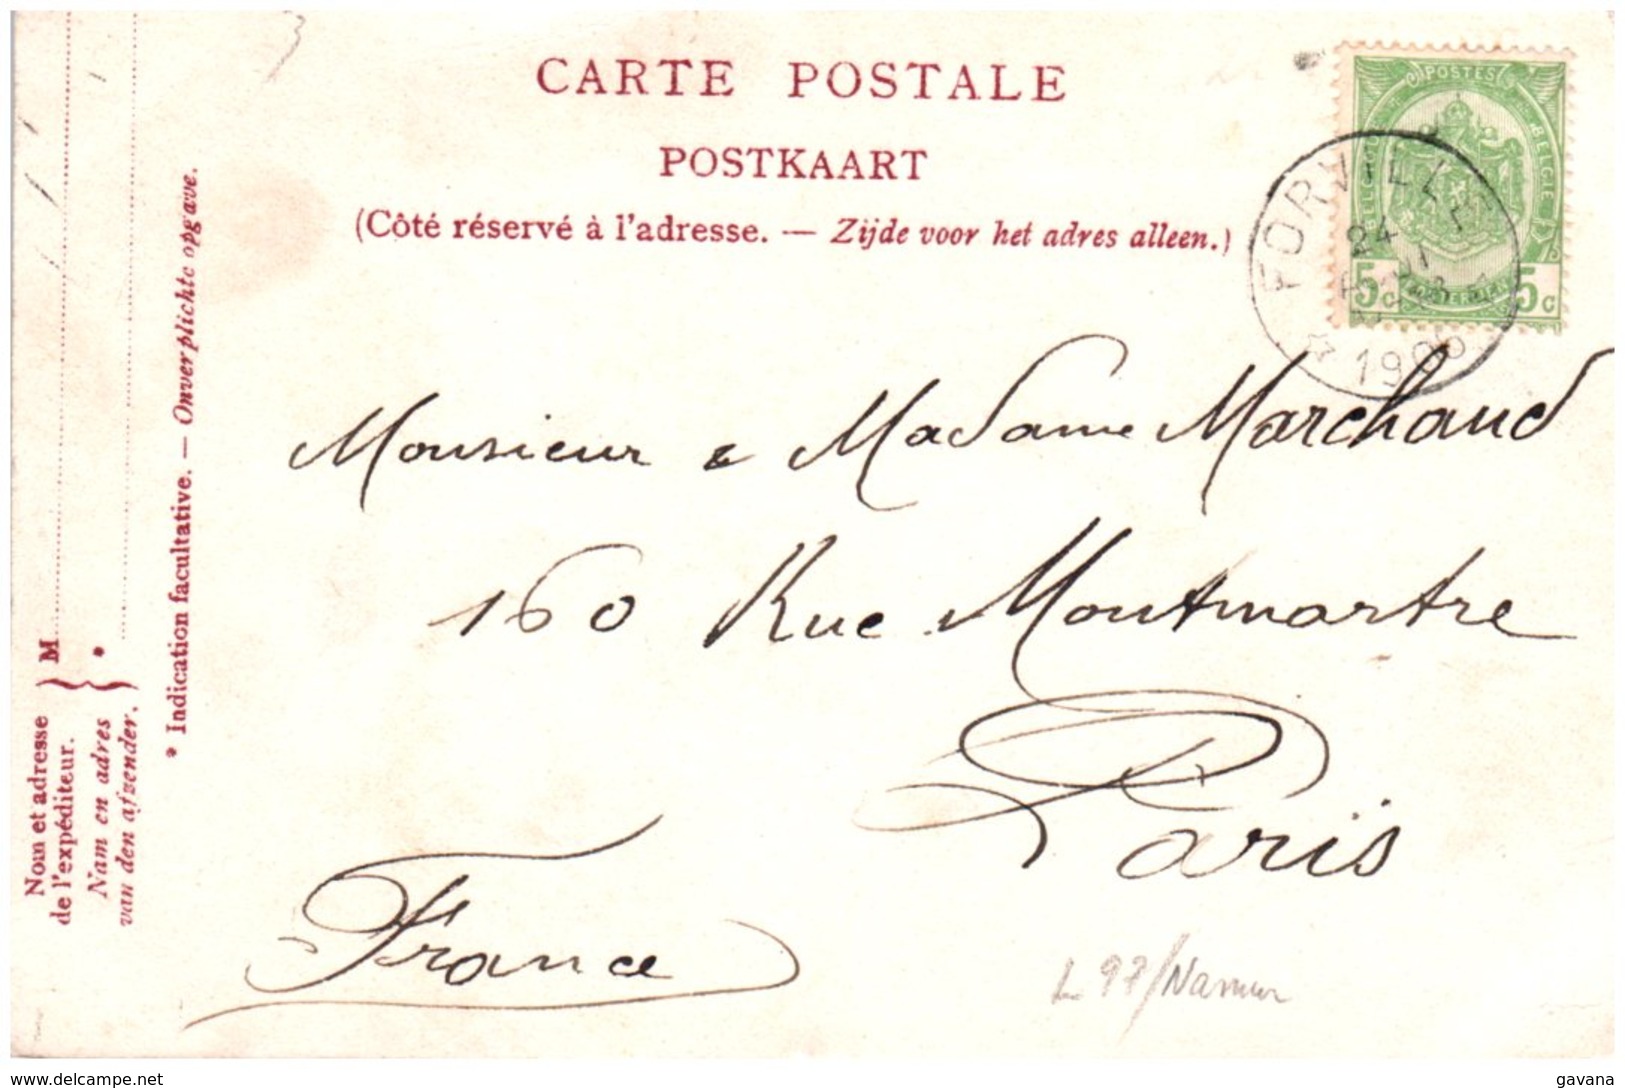 CARTE POSTALE
POSTKAART
(Côté réservé à l'adresse. — Zijde voor het adres alleen.)
POSTES
BELGIE
5c 5c
FORVILLE
24
1906
Monsieur & Madame Marchand
160 Rue Montmartre
Paris
France
L 97/Namur
Nom et adresse
de l'expéditeur.
Nam en adres
van den afzender.
M
*
* Indication facultative. — Onverplichte opgave.
delcampe.net
gavana